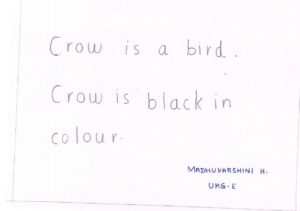 Crow is a bird.
Crow is black in
colour.
MADHUVARSHINI H.
UKG-E